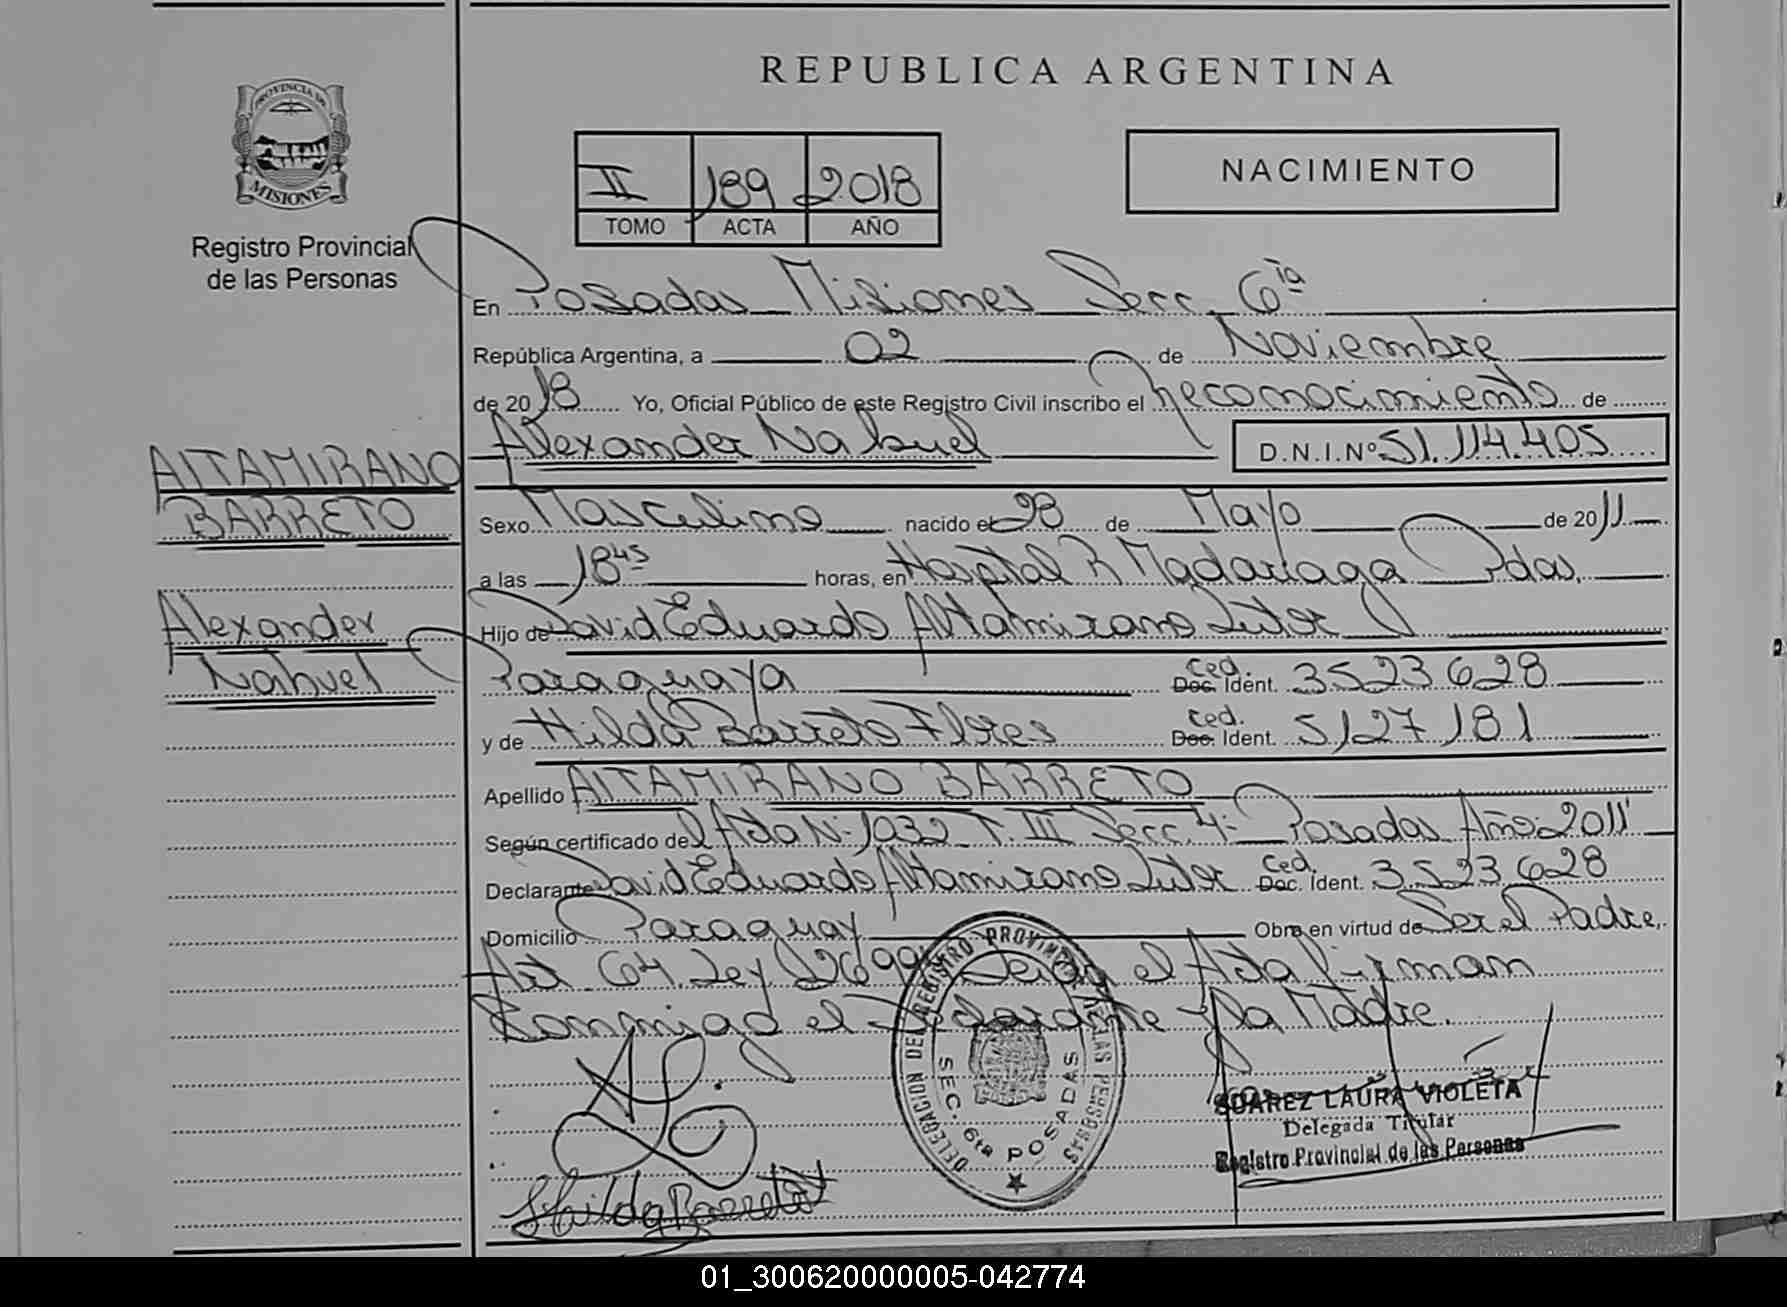 REPUBLICA ARGENTINA
PROVINCIA DE
MISIONES
Registro Provincial
de las Personas
II 189 2018
TOMO ACTA AÑO
NACIMIENTO
En Posadas Misiones Secc. 6ta
República Argentina, a 02 de Noviembre
de 2018 Yo, Oficial Público de este Registro Civil inscribo el Reconocimiento de
Alexander Nahuel D.N.I.Nº 51.114.405
ALTAMIRANO
BARRETO
Alexander
Nahuel
Sexo Masculino nacido el 28 de Mayo de 2011
a las 18 45 horas, en Hospital R Madariaga Pdas.
Hijo de David Eduardo Altamirano
Paraguaya Ced. Doc. Ident. 3523628
y de Hilda Barreto Flores Ced. Doc. Ident. 5127181
Apellido ALTAMIRANO BARRETO
Según certificado del Acta Nº 1032 T. III Secc. 4º Posadas Año 2011
Declarante David Eduardo Altamirano Ced. Doc. Ident. 3523628
Domicilio Paraguay Obra en virtud de Ser el Padre,
Art. 64. Ley 26994 el Acta Firman
Conmigo el Declarante y la Madre.
DELEGACION DEL REGISTRO PROVINCIAL DE LAS PERSONAS
SEC. 6ta POSADAS
SUAREZ LAURA VIOLETA
Delegada Titular
Registro Provincial de las Personas
Hilda Barreto
01_300620000005-042774